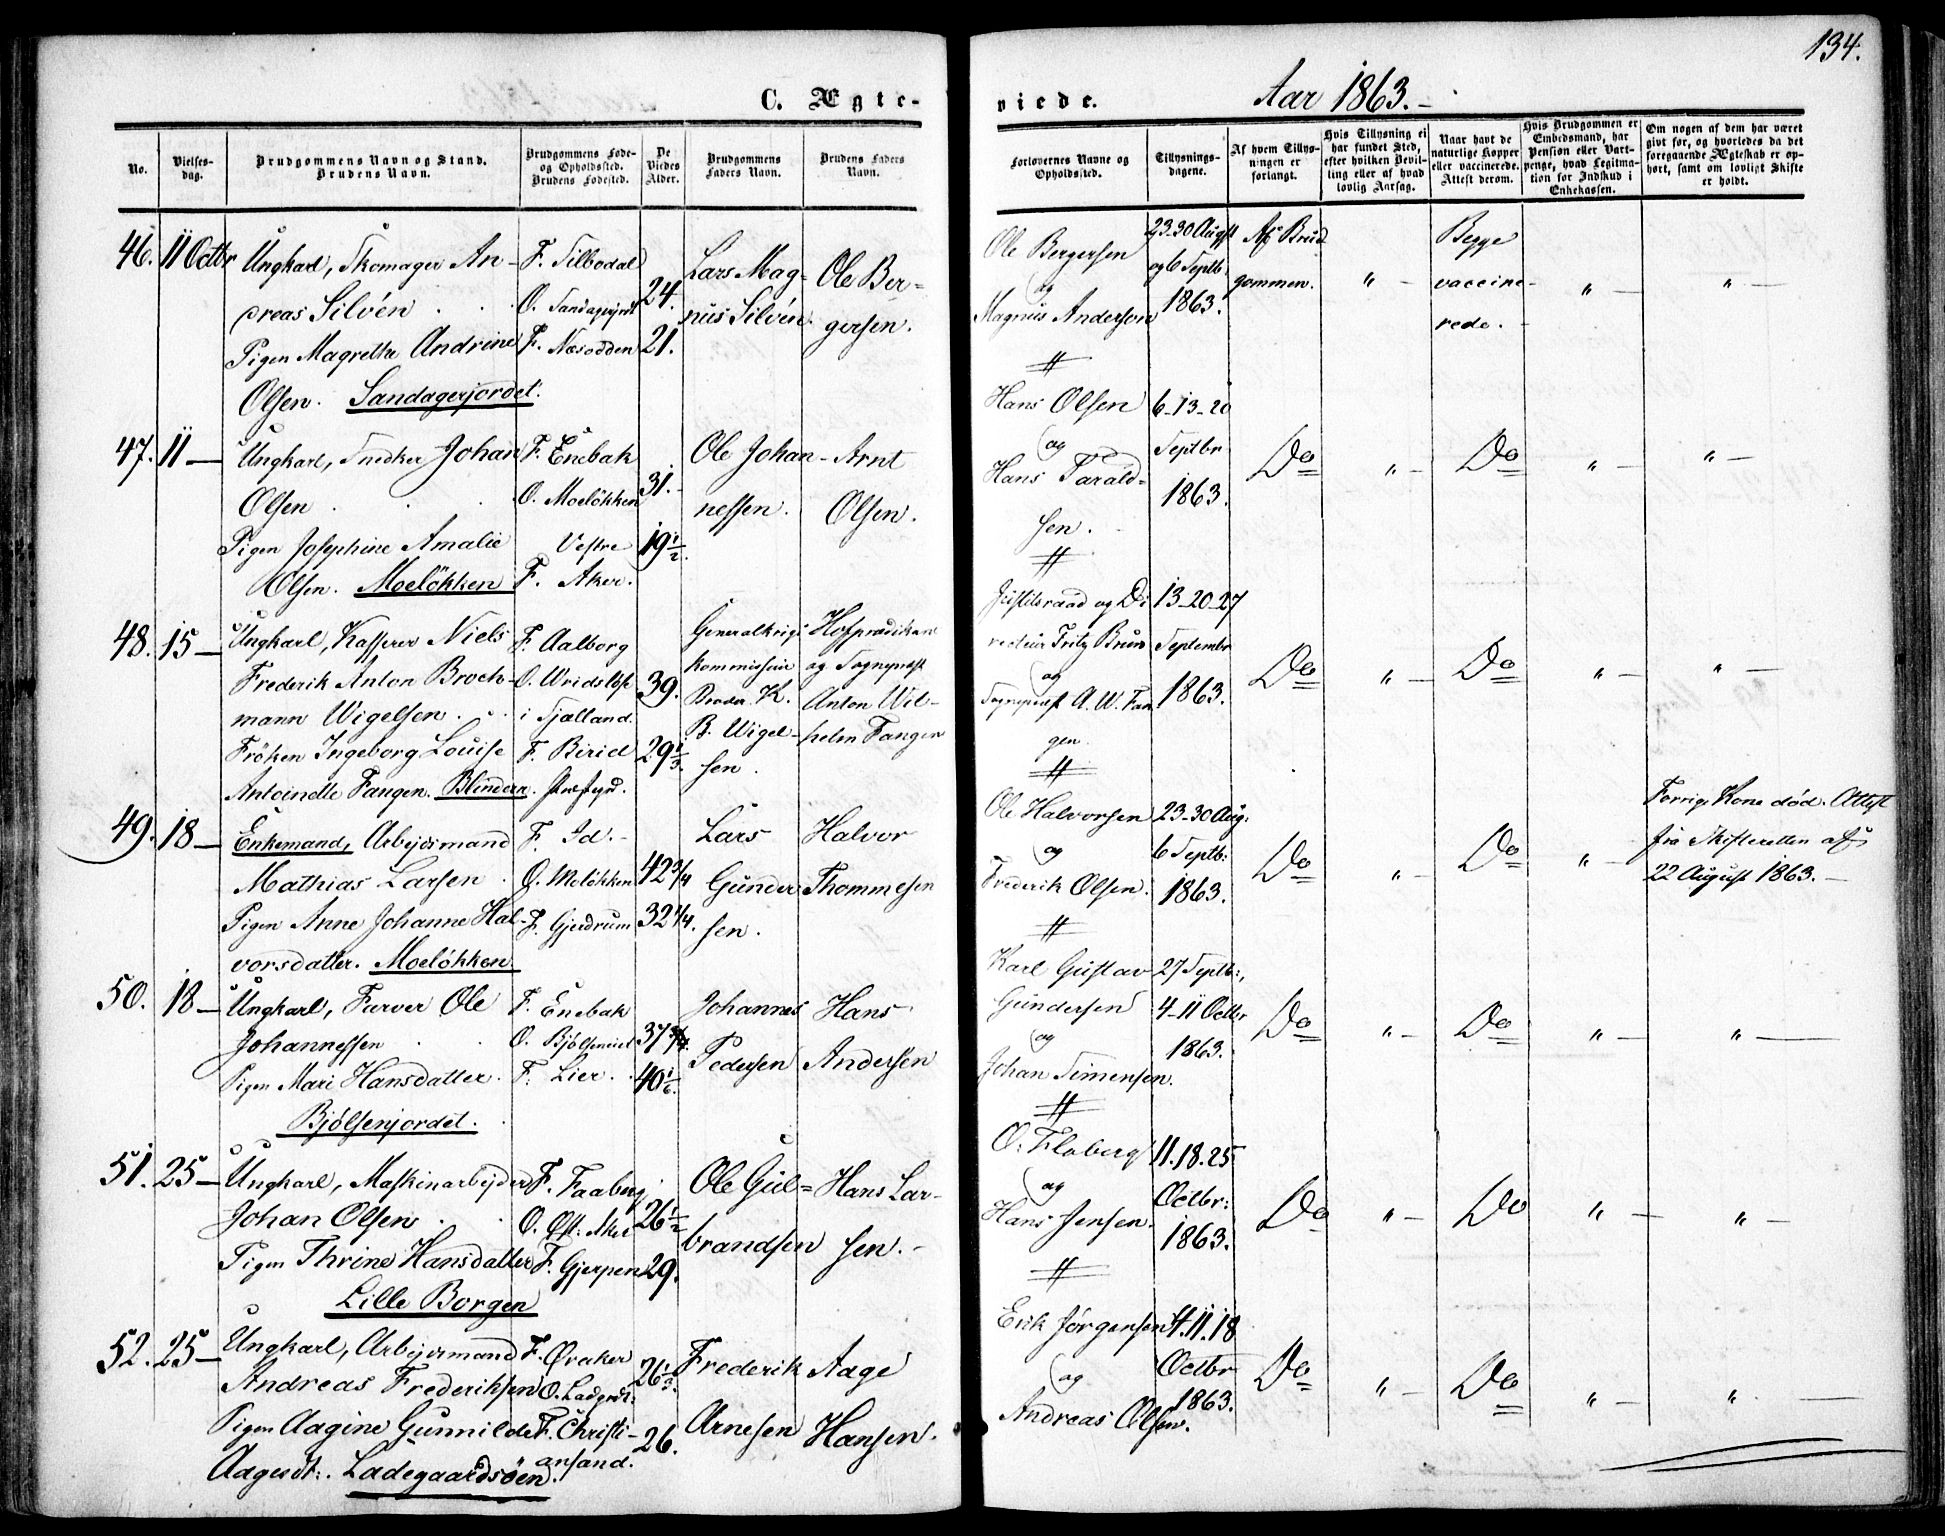 134.
C. Ægte-
viede.
Aar 1863.
No.
Vielses-
dag.
Brudgommens Navn og Stand.
Brudens Navn.
Brudgommens Føde-
og Opholdssted.
Brudens Fødested.
De
Viedes
Alder.
Brudgommens
Faders Navn.
Brudens Faders
Navn.
Forlovernes Navne og
Opholdssted.
Tillysnings-
dagene.
Af hvem Tillys-
ningen er
forlangt.
Hvis Tillysning ei
har fundet Sted,
efter hvilken Bevil-
ling eller af hvad
lovlig Aarsag.
Naar havt de
naturlige Kopper
eller vaccinerede.
Attest derom.
Hvis Brudgommen er
Embedsmand, har
Pension eller Vart-
penge, hvad Legitima-
tion for Indskud i
Enkekassen.
Om nogen af dem har været
givt før, og hvorledes da det
foregaaende Ægteskab er op-
hørt, samt om lovligt Skifte
er holdt.
46. 11 Octbr
Ungkarl, Skomager An-
dreas Silvén
Pigen Magrethe Andrine
Olsen. Sandagerjordet.
F. Tilbodal
O. Sandagerjord
F. Næsodden
24.
21.
Lars Mag-
nus Silvén.
Ole Ber-
gersen.
Ole Bergersen
og
Magnus Anderson
23-30 Augst
og 6 Septb:
1863.
Af Brud
gommen.
" -
Begge
vaccine-
rede.
" -
" -
47. 11 -
Ungkarl, Snedker Johan
Olsen
Pigen Josephine Amalie
Olsen. Moeløkken
F. Enebak
O. Moeløkken
Vestre
F. Aker.
31.
19 1/2.
Ole Johan-
nessen.
Arnt
Olsen.
Hans Olsen
og
Hans Tarald-
sen.
6-13-20
Septbr
1863.
Do
" -
Do
" -
" -
48. 15 -
Ungkarl, Kasserer Niels
Frederik Anton Broch-
mann Wigelsen.
Frøken Ingeborg Louise
Antoinette Fangen. Blindern.
F. Aalborg
O. Wridsløse
i Sjælland.
F. Birid
Præstgd.
39.
29 1/3.
Generalkrigs
kommissair
Broder K.
B. Wigel-
sen.
Hofprædikan
og Sognepræst
Anton Wil-
helm Fangen
Justitsraad og Di
recteur Fritz Bruun
og
Sognepræst A. W. Fan
gen.
13-20-27
Septembr
1863.
Do
" -
Do
" -
" -
49. 18 -
Enkemand, Arbejdsmand
Mathias Larsen
Pigen Anne Johanne Hal-
vorsdatter. Moeløkken
F. Id.
O. Moløkken
F. Gjerdrum
42 3/4
32 1/4.
Lars
Gunder
sen.
Halvor
Thommesen
Ole Halvorsen
og
Frederik Olsen.
23-30 Aug:
6 Septb:
1863.
Do
" -
Do
" -
Forrige Kone død. Attest
fra Skifteretten af
22 August 1863.
50. 18 -
Ungkarl, Farver Ole
Johannessen
Pigen Mari Hansdatter.
Bjølsenjordet.
F. Enebak
O. Bjølseneiet
F. Lier.
37 3/4.
40 1/6.
Johannes
Pedersen
Hans
Andersen
Karl Gustav
Gundersen
og
Johan Simensen.
27 Septb:,
4-11 Octbr
1863.
Do
" -
Do
" -
" -
51. 25 -
Ungkarl, Maskinarbejder
Johan Olsen
Pigen Thrine Hansdatter
Lille Borgen
F. Faaberg
O. Øst: Aker
F. Gjerpen
26 1/2
29.
Ole Gul-
brandsen
Hans Lar-
sen.
O. Floberg
og
Hans Jensen.
11.18.25
Octbr:
1863.
Do
" -
Do
" -
" -
52. 25 -
Ungkarl, Arbejdsmand
Andreas Frederiksen
Pigen Aagine Gunnilde
Aagesdt:. Ladegaardsøen.
F. Øraker
O. Ladgrds:
F. Christi-
ansand.
26 1/3.
26.
Frederik
Arnesen
Aage
Hansen.
Erik Jørgensen
og
Andreas Olsen.
4.11.18
Octbr
1863.
Do
" -
Do
" -
" -